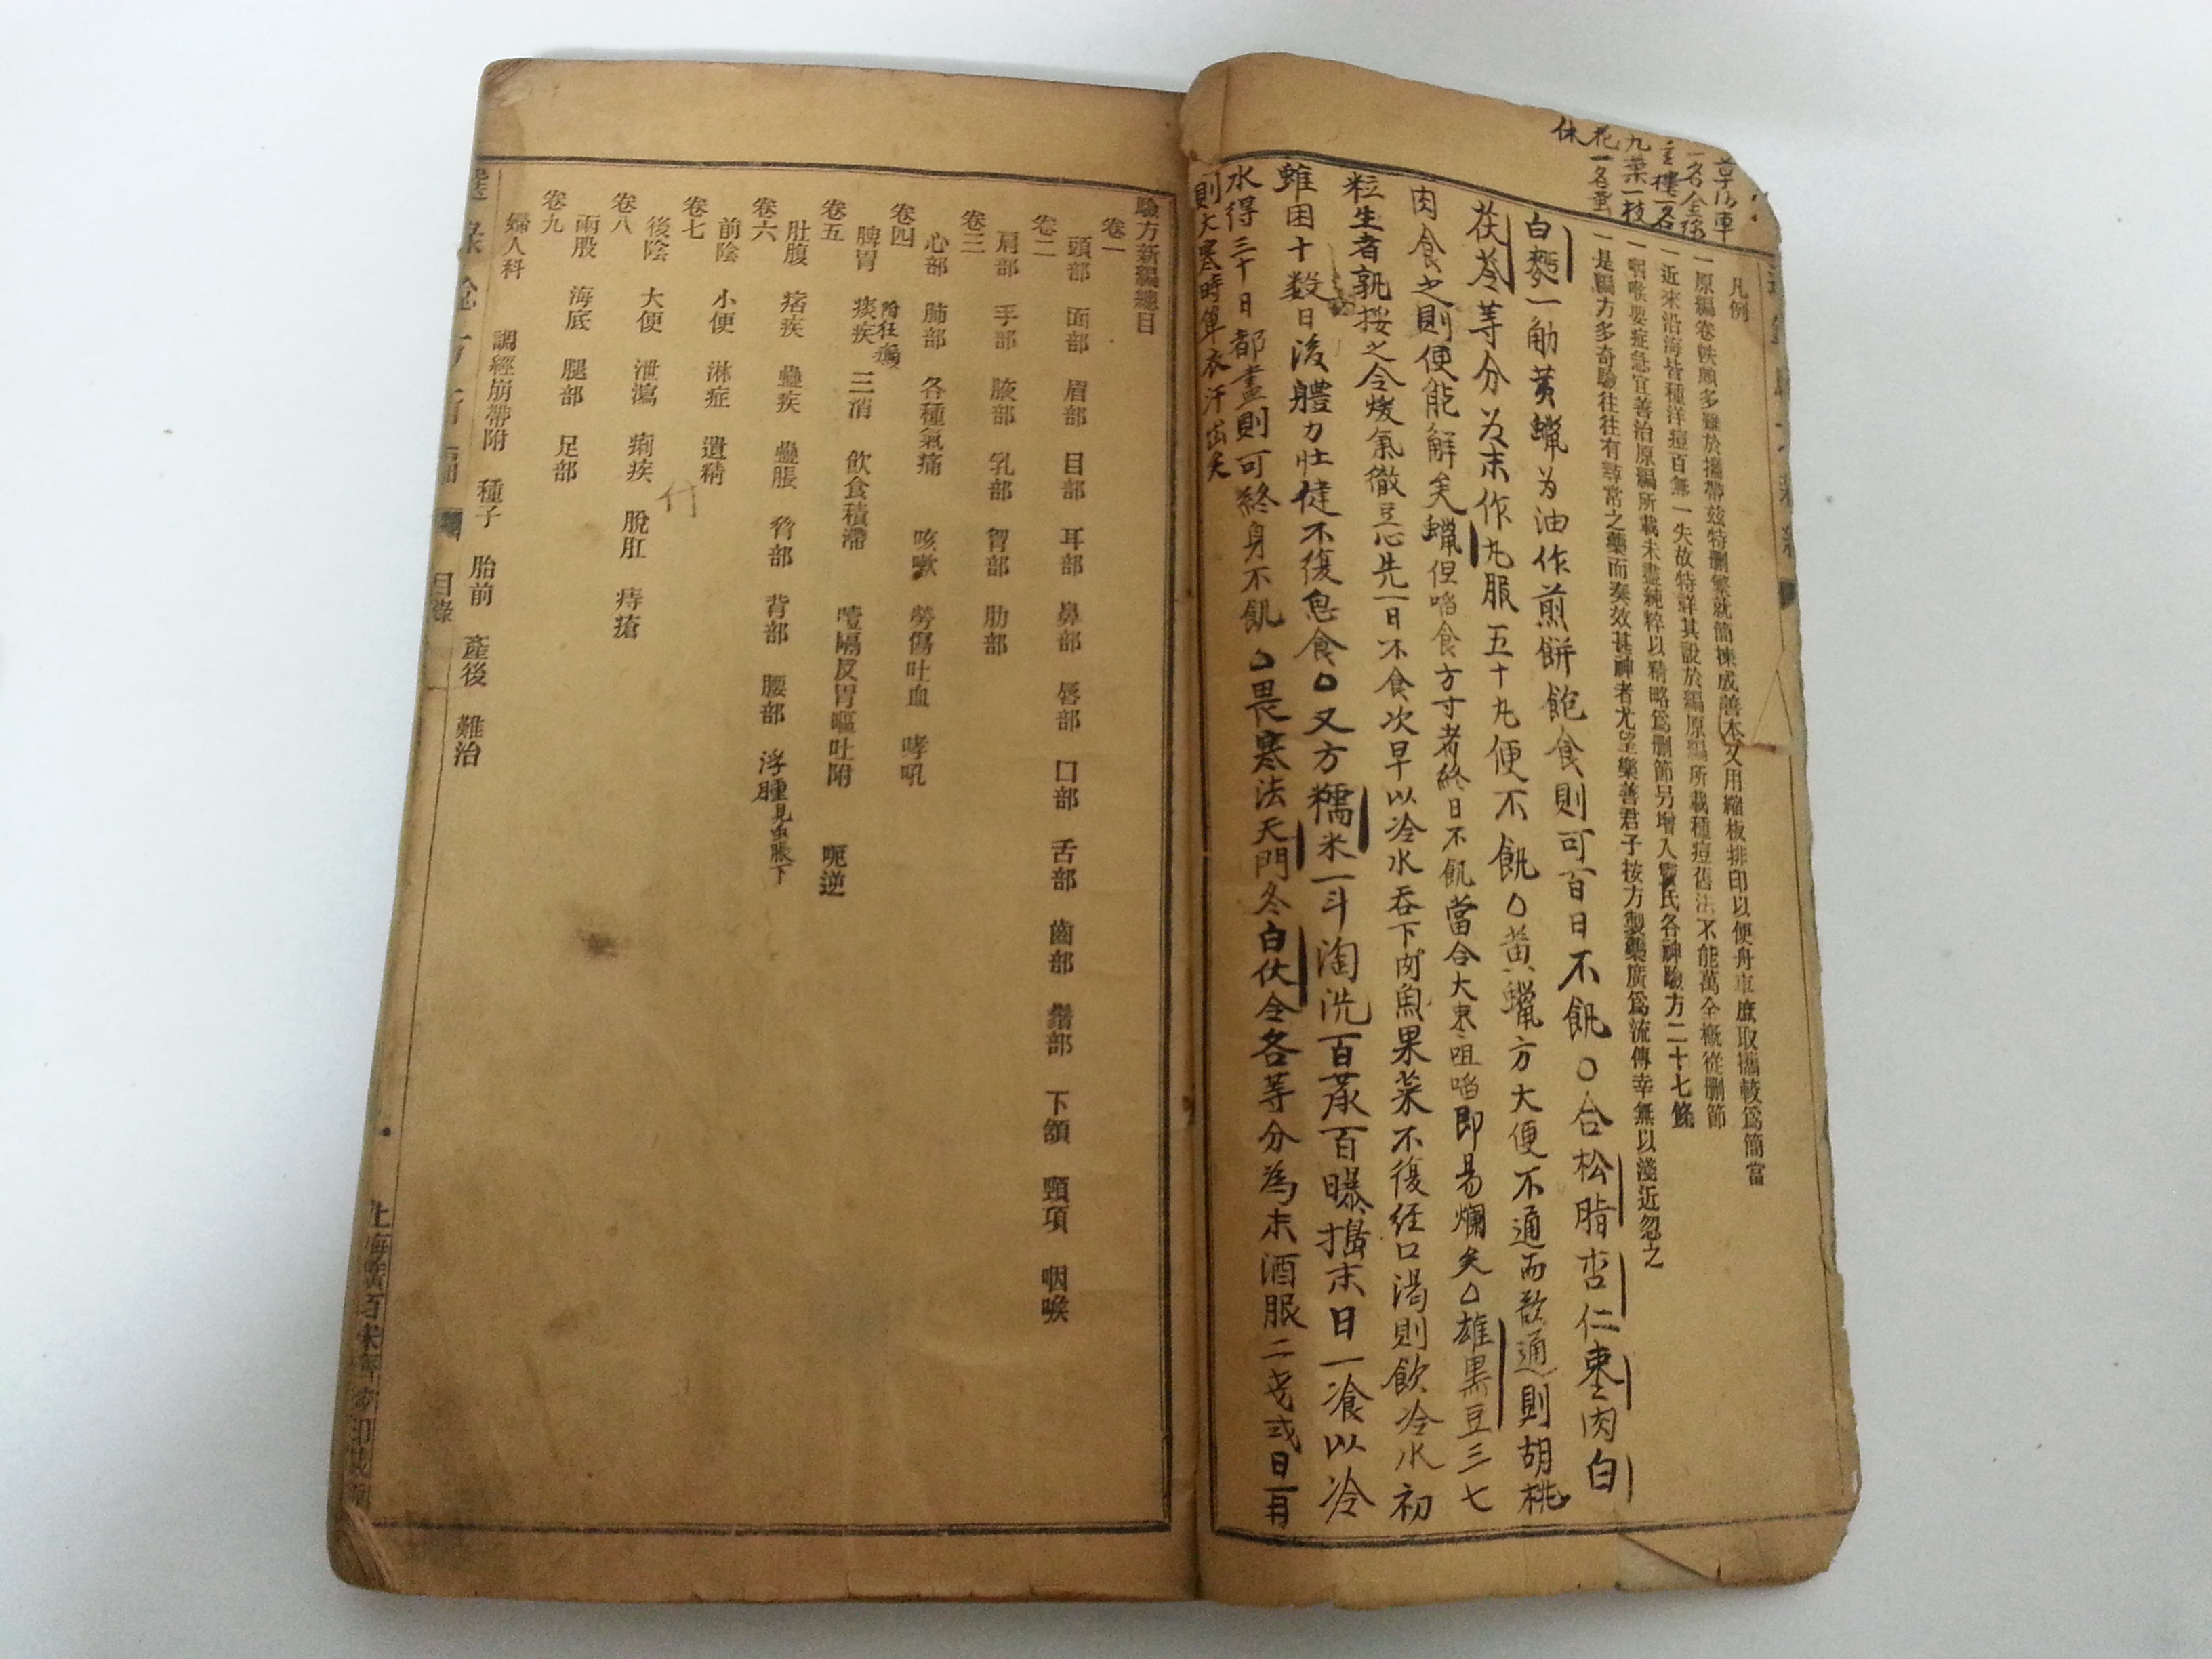 凡例
一原編卷帙頗多難於攜帶玆特删繁就簡揀成善本又用縮板排印以便舟車庶取攜較爲簡當
一近來沿海皆種洋痘百無一失故特詳其說於編原編所載種痘舊法不能萬全槪從删節
一咽喉要症急宜善治原編所載未盡純粹以精略爲删節另增入氏各神驗方二十七條
一是編方多奇驗往往有尋常之藥而奏效甚神者尤望樂善君子按方製藥廣爲流傳幸無以淺近忽之
白麪一觔黃蠟为油作煎餅飽食則可百日不飢○合松脂杏仁棗肉白
茯苓等分为末作丸服五十丸便不飢△黃蠟方大便不通而欲通則胡桃
肉食之則便能解矣蠟但啗食方寸者終日不飢當合大棗咀啗即易爛矣△雄黑豆三七
粒生者孰挼之令煖氣徹豆心先一日不食次早以冷水吞下肉魚果菜不復經口渴則飲冷水初
雖困十数日後體力壯健不復思食△又方糯米一斗淘洗百蒸百曝搗末日一飡以冷
水得三十日都盡則可終身不飢△畏寒法天門冬白伏令各等分為末酒服二戔弍日一再
則大寒時單衣汗出矣
一名
重樓一名
九葉一枝
花一名蚤
休
驗方新編總目
卷一
頭部 面部 眉部 目部 耳部 鼻部 唇部 口部 舌部 齒部 鬚部 下頷 頸項 咽喉
卷二
肩部 手部 腋部 乳部 胷部 肋部
卷三
心部 肺部 各種氣痛 咳嗽 勞傷吐血 哮吼
卷四
脾胃 痰疾附狂癲 三消 飲食積滯 噎隔反胃嘔吐附 呃逆
卷五
肚腹 痞疾 蠱疾 蠱脹 脅部 背部 腰部 浮腫見蠱脹下
卷六
前陰 小便 淋症 遺精
卷七
後陰 大便 泄瀉 痢疾 脫肛 痔瘡
卷八
兩股 海底 腿部 足部
卷九
婦人科 調經崩帶附 種子 胎前 產後 難治
目錄